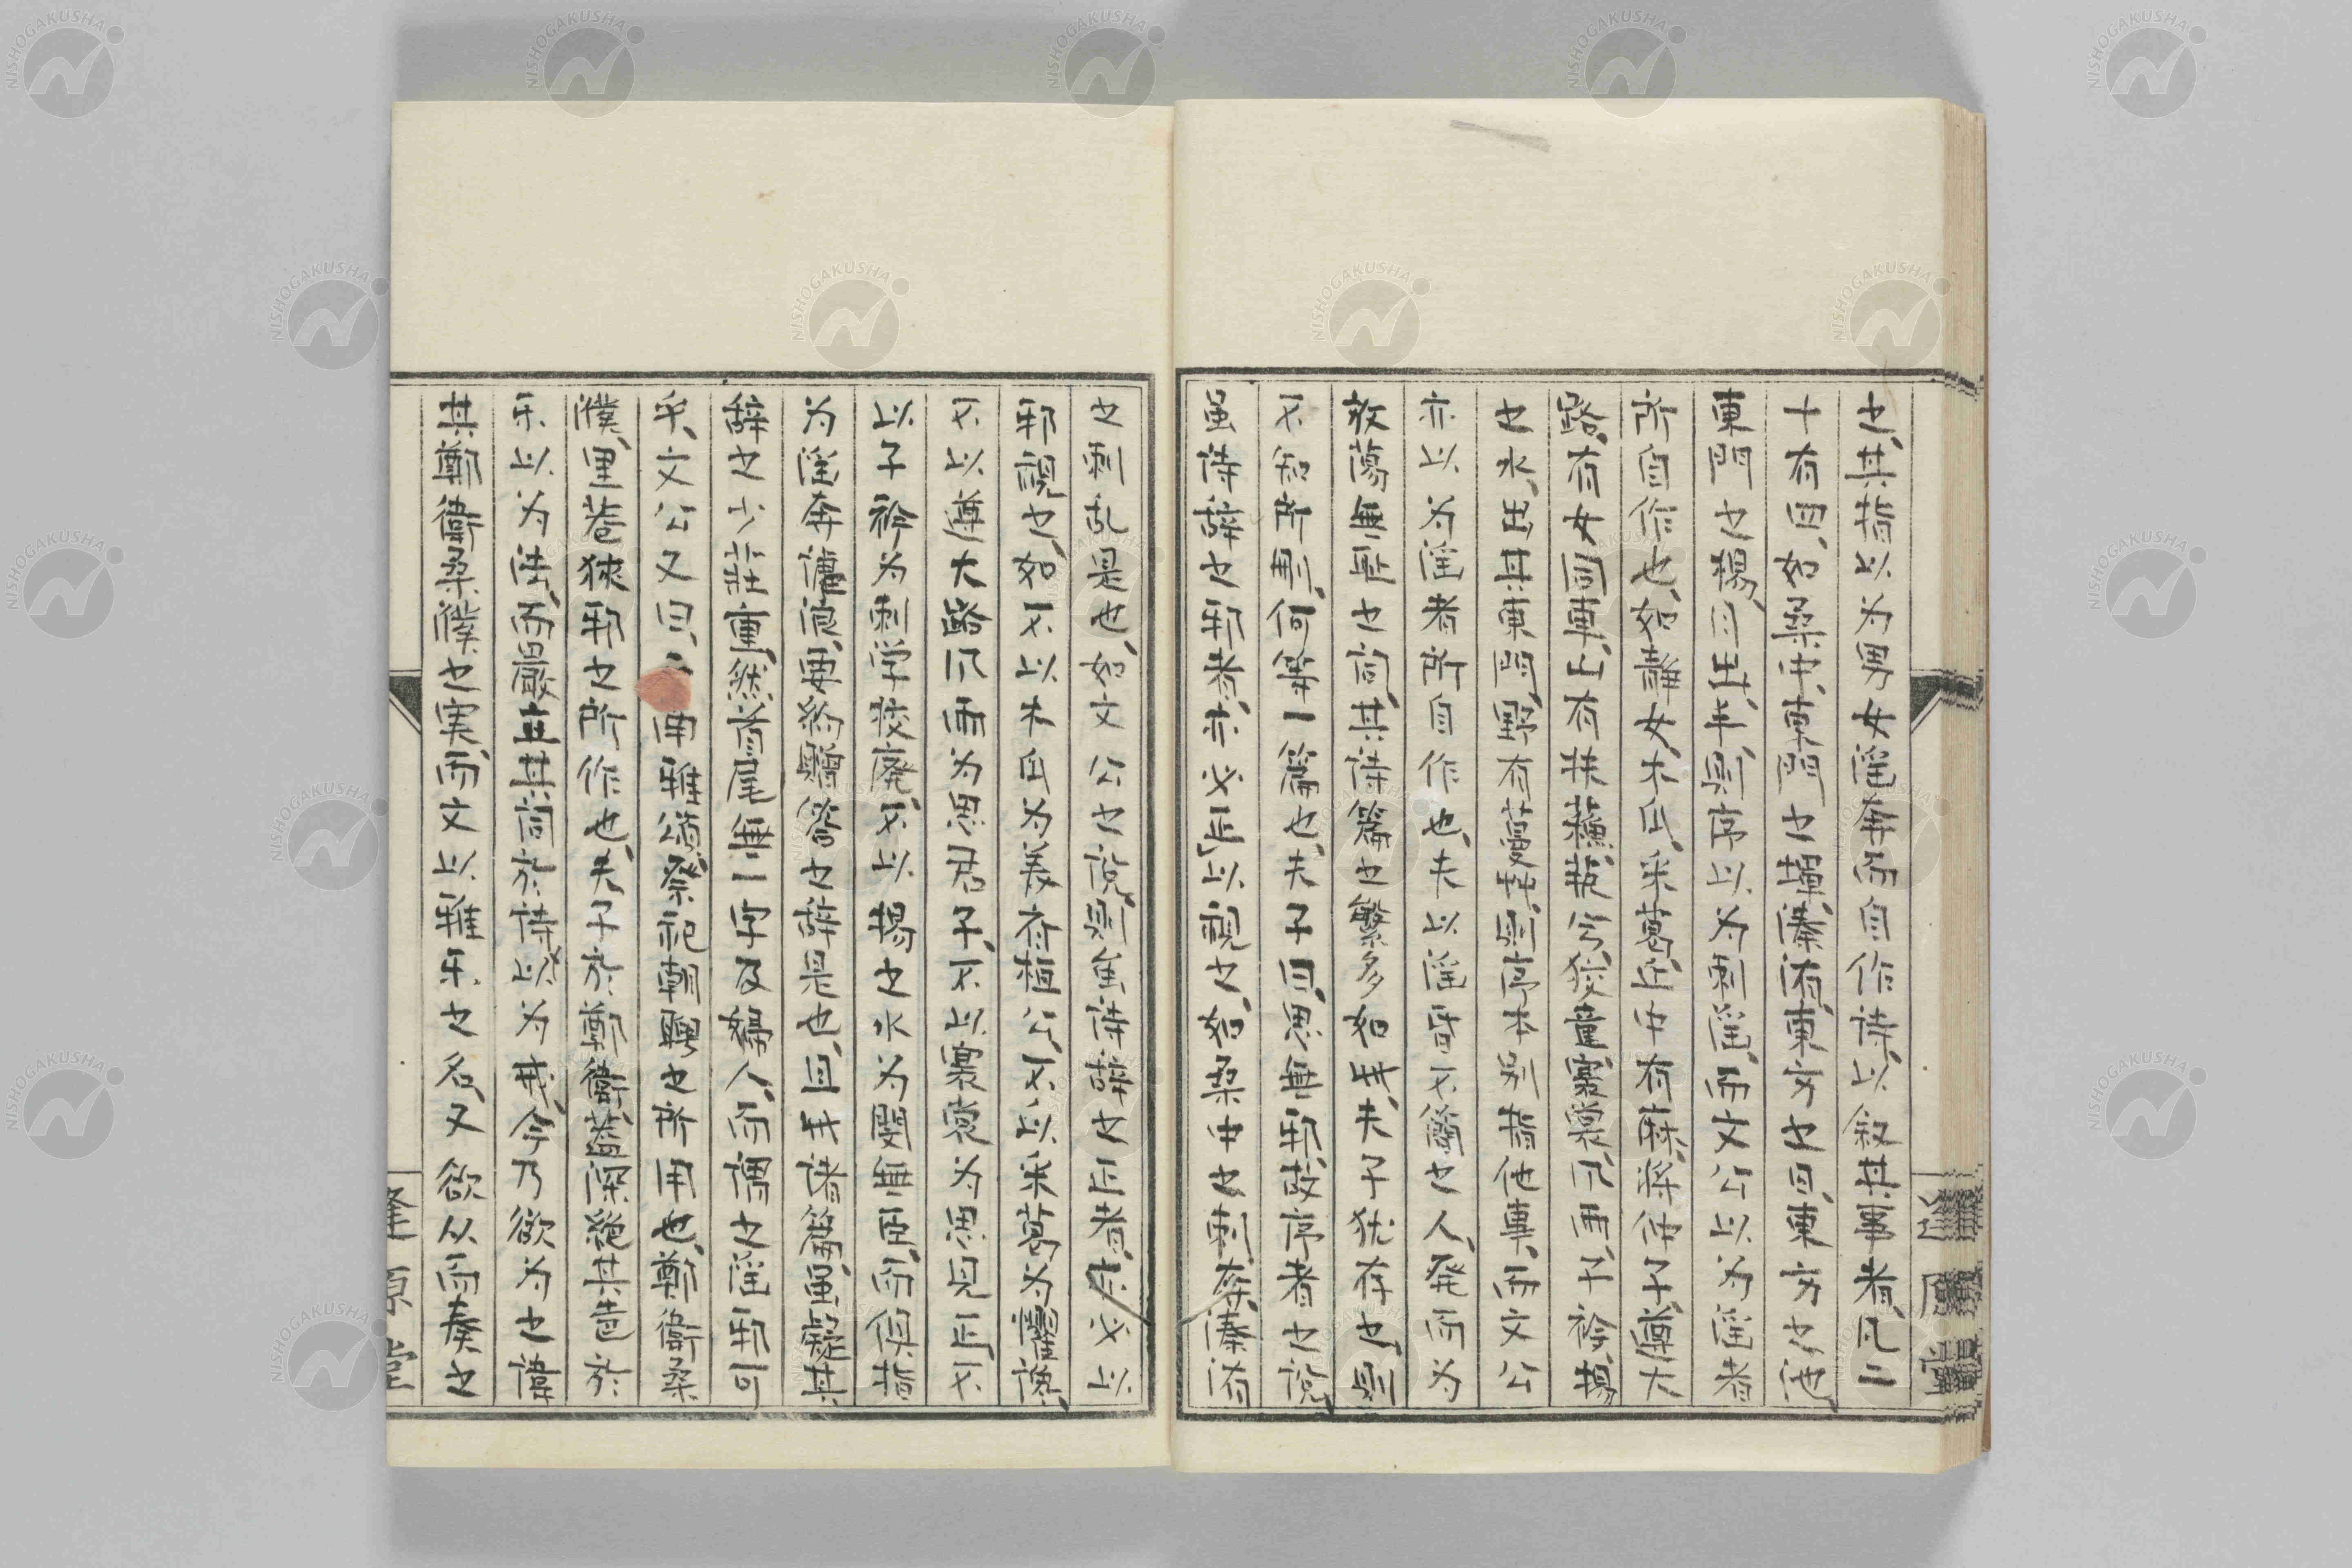 之、其指以为男女淫奔而自作诗、以叙其事者、凡二
十有四、如桑中、東門之墠、溱洧、東方之日、東方之池、
東門之楊、月出、半、則序以为刺淫、而文公以为淫者
所自作也、如静女、木瓜、采葛、丘中有麻、将仲子、遵大
路、有女同車、山有扶蘇、蘀兮、狡童、褰裳、丰、子衿、揚
之水、出其東門、野有蔓草、則序本別指他事、而文公
亦以为淫者所自作也、夫以淫昏不𥳑之人、発而为
放蕩無耻之詞、其诗篇之繁多如此、夫子犹存之、則
不知所刪、何等一篇也、夫子曰、思無邪、故序者之說、
虽诗辞之邪者、亦必正以視之、如桑中之刺奔、溱洧
之刺乱是也、如文公之說、則虽诗辞之正者、亦必以
邪視之、如不以木瓜为美斉桓公、不以采葛为懼讒、
不以遵大路、风雨为思君子、不以褰裳为思見正、不
以子衿为刺学校廃、不以揚之水为閔無臣、而俱指
为淫奔謔浪、要約贈答之辞是也、且此诸篇、虽疑其
辞之少荘重、然首尾無一字及婦人、而謂之淫邪可
乎、文公又曰、二南雅頌、祭祀朝聘之所用也、鄭衛桑
濮、里巷狭邪之所作也、夫子於鄭衛、蓋深絶其声於
乐以为法、而厳立其詞於诗、以为戒、今乃欲为之諱
其鄭衛桑濮之実、而文以雅乐之名、又欲从而奏之
逢原堂